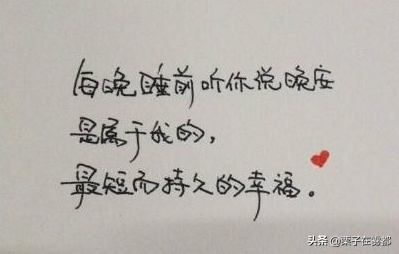 每晚睡前听你说晚安
是属于我的，
最短而持久的幸福。
头条 @栗子在雾都